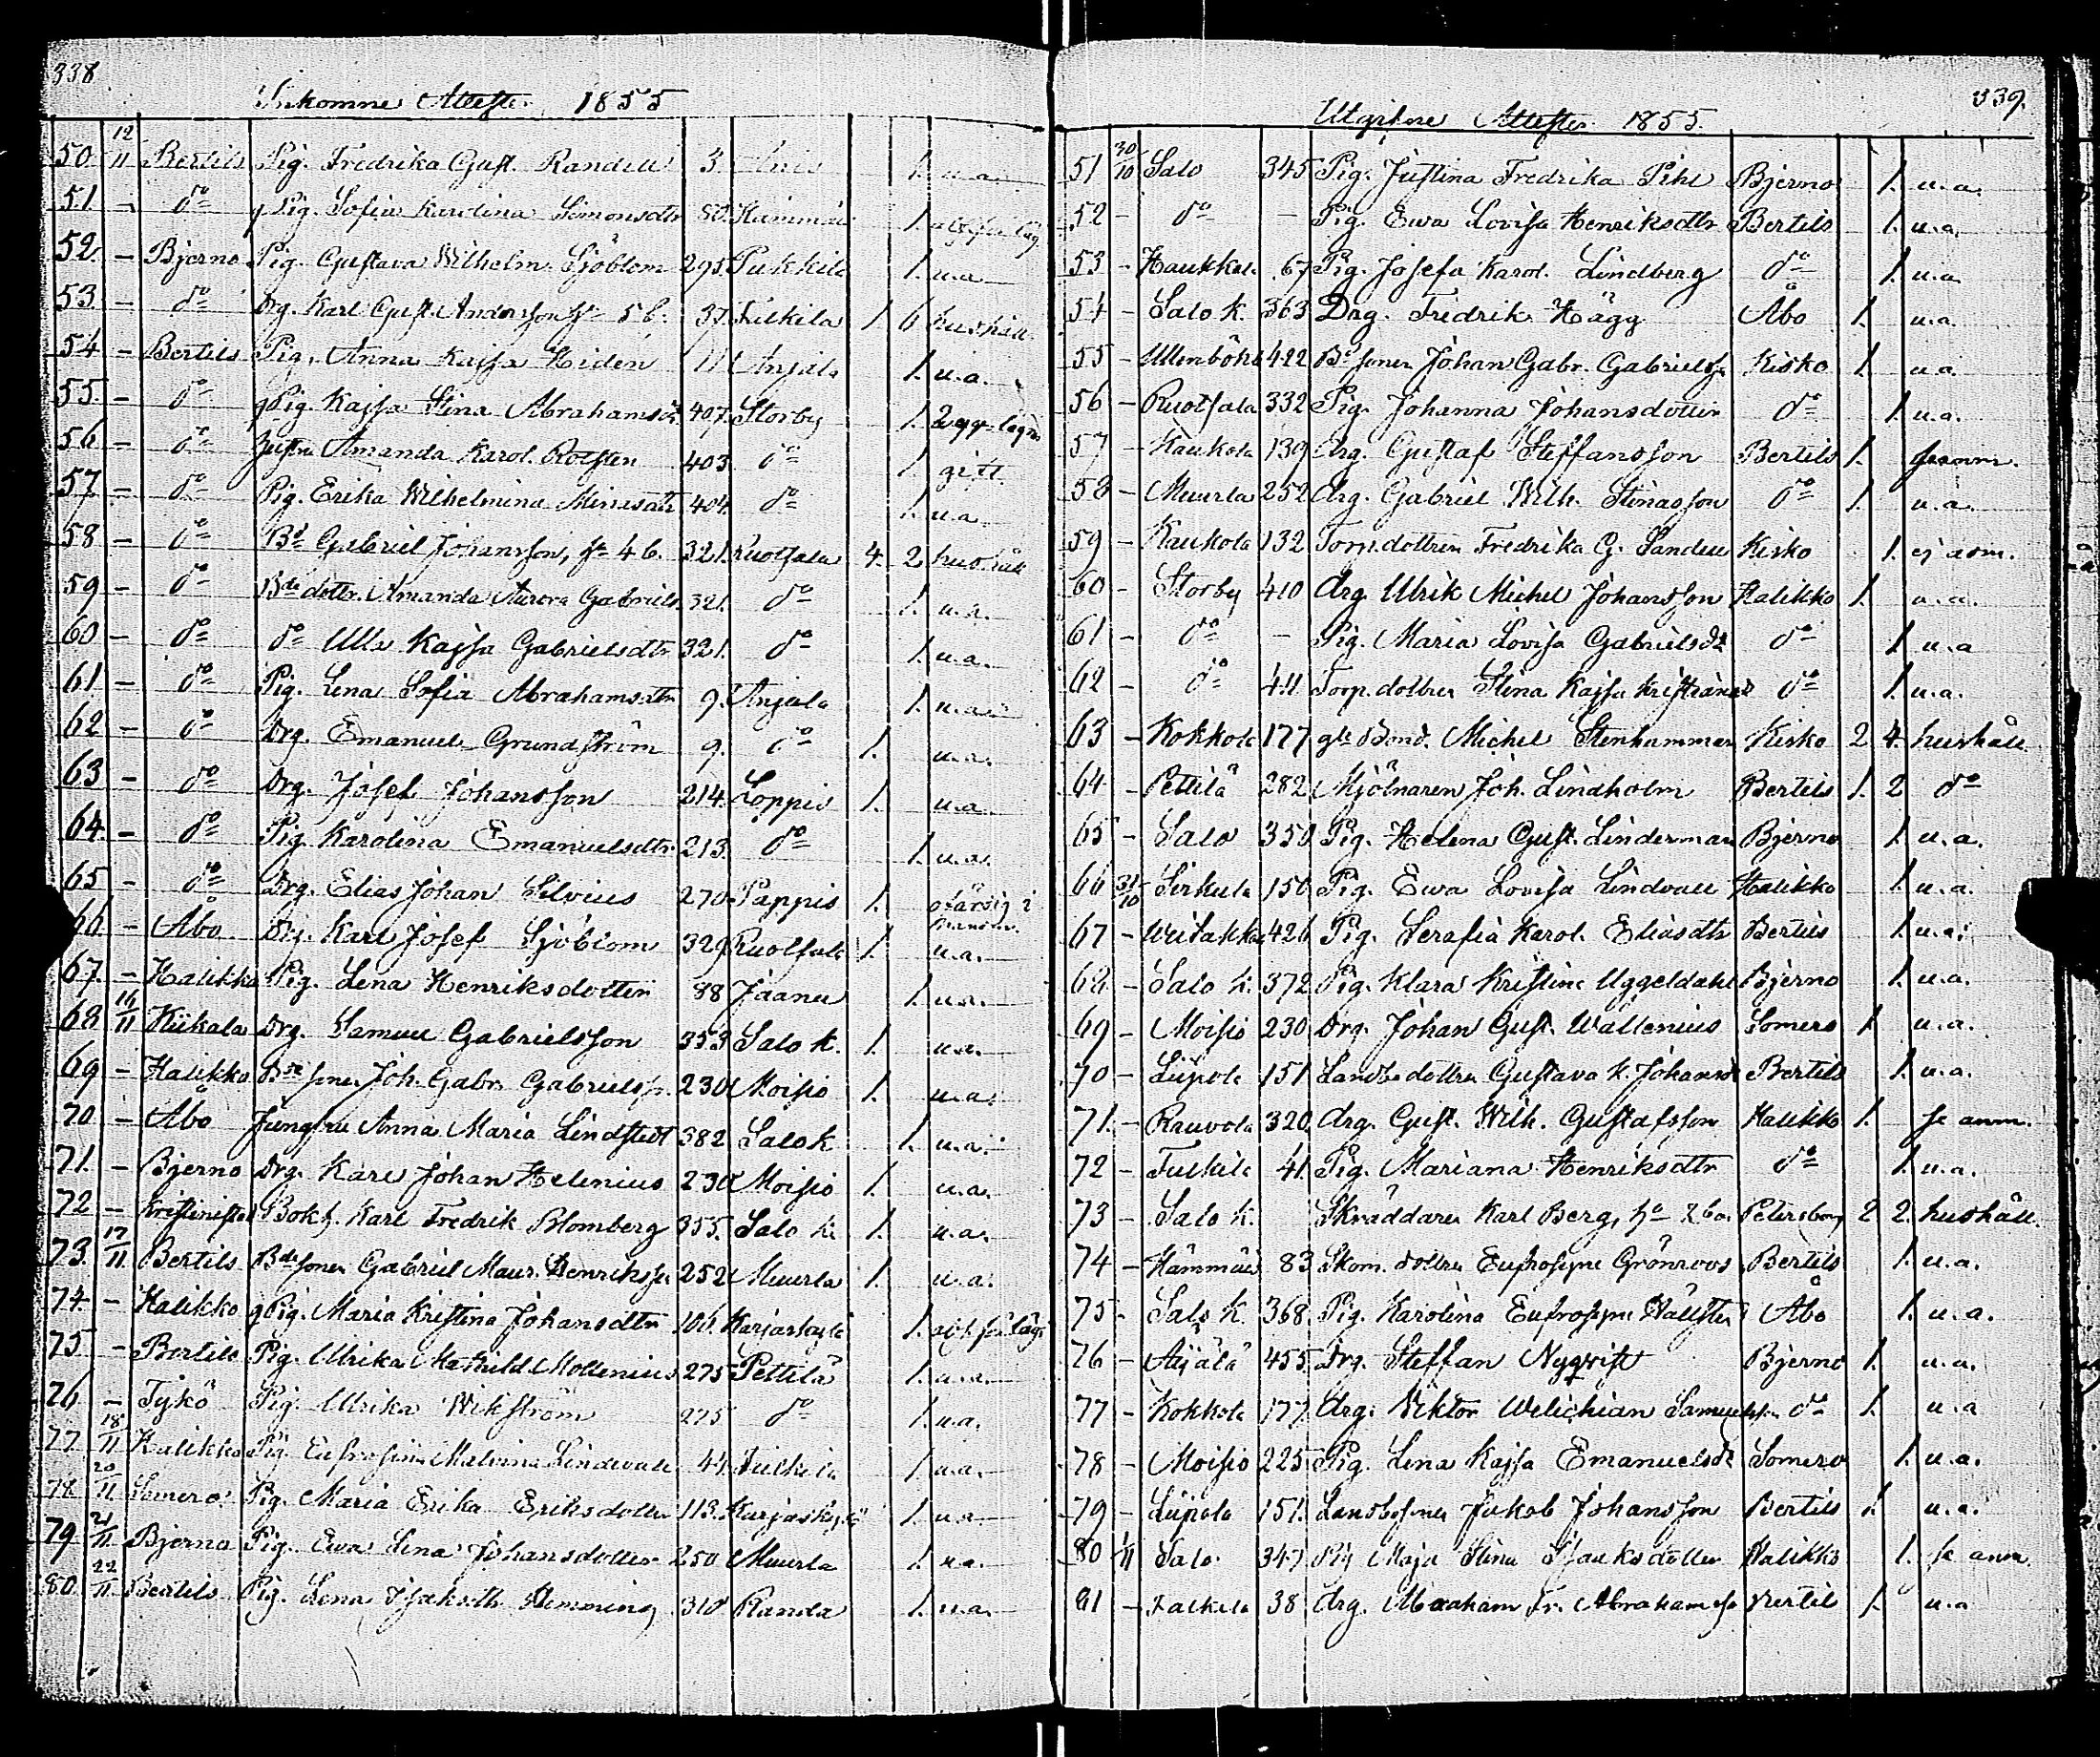 338
Inkomne Attester 1855
50. 12/11 Bertils Pig. Fredrika Gust. Randell 3. 1. u.a.
51. - do Pig. Sofia Karolina Simonsdtr 80. Hämmäis 1.
52. - Bjerno Pig. Gustava Wilhelm. Sjöblom 295. Pukkila 1. u.a.
53. - do Drg. Karl Gust. Andersson 37. 1 6 hushåll
54 - Bertils Pig. Anna Kajsa Hiden 11 Anjala 1. u.a.
55. - do Pig. Kajsa Stina Abrahamsdtr 407. Storby 1.
56 - do Amanda Karol. 403. do 1. gift
57 - do Pig. Erika Wilhelmina 404. do 1. u.a.
58 - do Bd Gabriel Johansson, 321. Ruotsala 4. 2 hushåll
59 - do Bdedottr. Amanda Aurora Gabriels. 321. do 1. u.a.
60 - do do Ulla Kajsa Gabrielsdtr 321. do 1. u.a.
61 - do Pig. Lena Sofia Abrahamsdtr 9. Anjala 1. u.a.
62 - do Drg. Emanuel Grundström 9. do 1. u.a.
63 - do Drg. Josef Johansson 214. Loppis 1. u.a.
64. - do Pig. Karolina Emanuelsdtr 213. do 1. u.a.
65 - do Drg. Elias Johan Silvius 270. Pappis 1. ofärdig i
66. - Åbo Drg. Karl Josef Sjöblom 329 Ruotsala 1. u.a.
67. - Halikko Pig. Lena Henriksdotter 88 Jaanu 1. u.a.
68 16/11 Kiikala Drg. Samuel Gabrielsson 353 Salo k. 1. u.a.
69 - Halikko Bdesonen Joh. Gabr. Gabrielss. 230 Moisio 1. u.a.
70 - Åbo Jungfru Anna Maria Lindstedt 382 Salo k 1. u.a.
71. - Bjerno Drg. Karl Johan Helenius 230 Moisio 1. u.a.
72 - Kristinestad Bokh. Karl Fredrik Blomberg 355. Salo k. 1. u.a.
73. 17/11 Bertils Bdesonen Gabriel Maur. Henrikss. 252 Muurla 1. u.a.
74. - Halikko Pig. Maria Kristina Johansdtr 106. Karjaskylä 1.
75 - Bertils Pig. Ulrika Mathild Mollenius 275 Pettilä 1. u.a.
76 - Tykö Pig. Ulrika Wikström 275 do 1. u.a.
77 18/11 Halikko Pig. Eufrosine Malvina Lindevall 44. 1. u.a.
78 20/11 Somero Pig. Maria Erika Eriksdotter 113. Karjaskylä 1. u.a.
79 21/11 Bjerno Pig. Ewa Lina Johansdotter 250 Muurla 1. u.a.
80. 22/11 Bertils Pig. Lena Isaksdtr Hemming 310 Randa 1. u.a.
339.
Utgifne Attester 1855.
51 30/10 Salo 345 Pig. Justina Fredrika Pihl Bjerno 1. u.a.
52 - do - Pig. Ewa Lovisa Henriksdtr Bertils 1. u.a.
53 - Kaukkola 67 Pig. Josefa Karol. Lindberg do 1. u.a.
54 - Salo k. 363 Drg. Fredrik Hägg Åbo 1. u.a.
55 - 422 Bd sonen Johan Gabr. Gabrielss. Kisko 1. u.a.
56 - Ruotsala 332 Pig. Johanna Johansdotter do 1. u.a.
57 - Kaukola 139 drg. Gustaf Steffansson Bertils 1. se anm.
58 - Muurla 252 drg. Gabriel Wilh. Stinasson do 1. u.a.
59 - Kaukola 132 Torp. dottren Fredrika G. Sandell Kisko 1. ej adm.
60 - Storby 410 drg. Ulrik Michel Johansson Halikko 1. u.a.
61 - do - Pig. Maria Lovisa Gabrielsdr do 1. u.a
62 - do 411 Torp. dottren Stina Kajsa do 1. u.a.
63 - Kokkola 177 Bond. Michel Stenhammar Kisko 2 4. hushåll
64 - Pettilä 282 Mjölnaren Joh. Lindholm Bertils 1. 2 do
65 - Salo 350 Pig. Helena Gust. Linderman Bjerno 1. u.a.
66 31/10 Sirkula 150 Pig. Ewa Lovisa Lindvall Halikko 1. u.a.
67 - 426 Pig. Serafia Karol. Eliasdtr Bertils 1. u.a.
68. - Salo k. 372 Pig. Klara Kristina Uggeldahl Bjerno 1. u.a.
69 - Moisio 230 Drg. Johan Gust. Wallenius Somero 1. u.a.
70 - 151 Landbs dottren Gustava K. Johansdr Bertils 1. u.a.
71. - Rauvola 320 drg. Gust. Wilh. Gustafsson Halikko 1. se anm.
72 - 41. Pig. Mariana Henriksdtr do 1. u.a.
73 - Salo k. Skräddaren Karl Berg, Petersburg 2 2. hushåll.
74 - Hämmäis 83 Skom. dottren Eufrosyne Grönroos Bertils 1. u.a.
75 - Salo k. 368. Pig. Karolina Eufrosyne Åbo 1. u.a.
76 - 455 Drg. Steffan Nyqvist Bjerno 1. u.a.
77 - Kokkola 177. drg. Viktor Samuelss. do 1. u.a
78 - Moisio 225 Pig. Lena Kajsa Emanuelsdr Somero 1. u.a.
79 - 151. Landbsonen Jakob Johansson Bertils 1. u.a.
80 1/11 Salo 347 Pig Maja Stina Isaksdotter Halikko 1. se anm
81 - 38 drg. Abraham Fr. Abrahamss Bertils 1. u.a